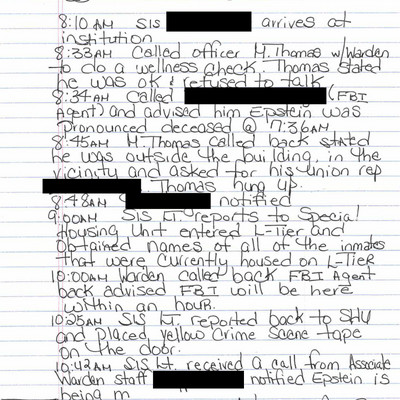 8:10 AM SIS arrives at
institution
8:33AM Called officer M.Thomas w/Warden
to do a wellness check. Thomas stated
he was ok & refused to talk
8:34AM Called (FBI
Agent) and advised him Epstein was
pronounced deceased @ 7:36AM
8:45AM M.Thomas called back stated
he was outside the building, in the
vicinity and asked for his union rep
Thomas hung up.
8:48AM notified
9:00AM SIS Lt. reports to Special
Housing Unit entered L-Tier and
obtained names of all of the inmates
that were currently housed on L-TIER
10:00AM Warden called back FBI Agent
back advised FBI will be here
within an hour.
10:35AM SIS Lt. reported back to SHU
and placed yellow Crime Scene tape
on the door.
10:42AM SIS Lt. received a call from Associate
Warden staff notified Epstein is
being m